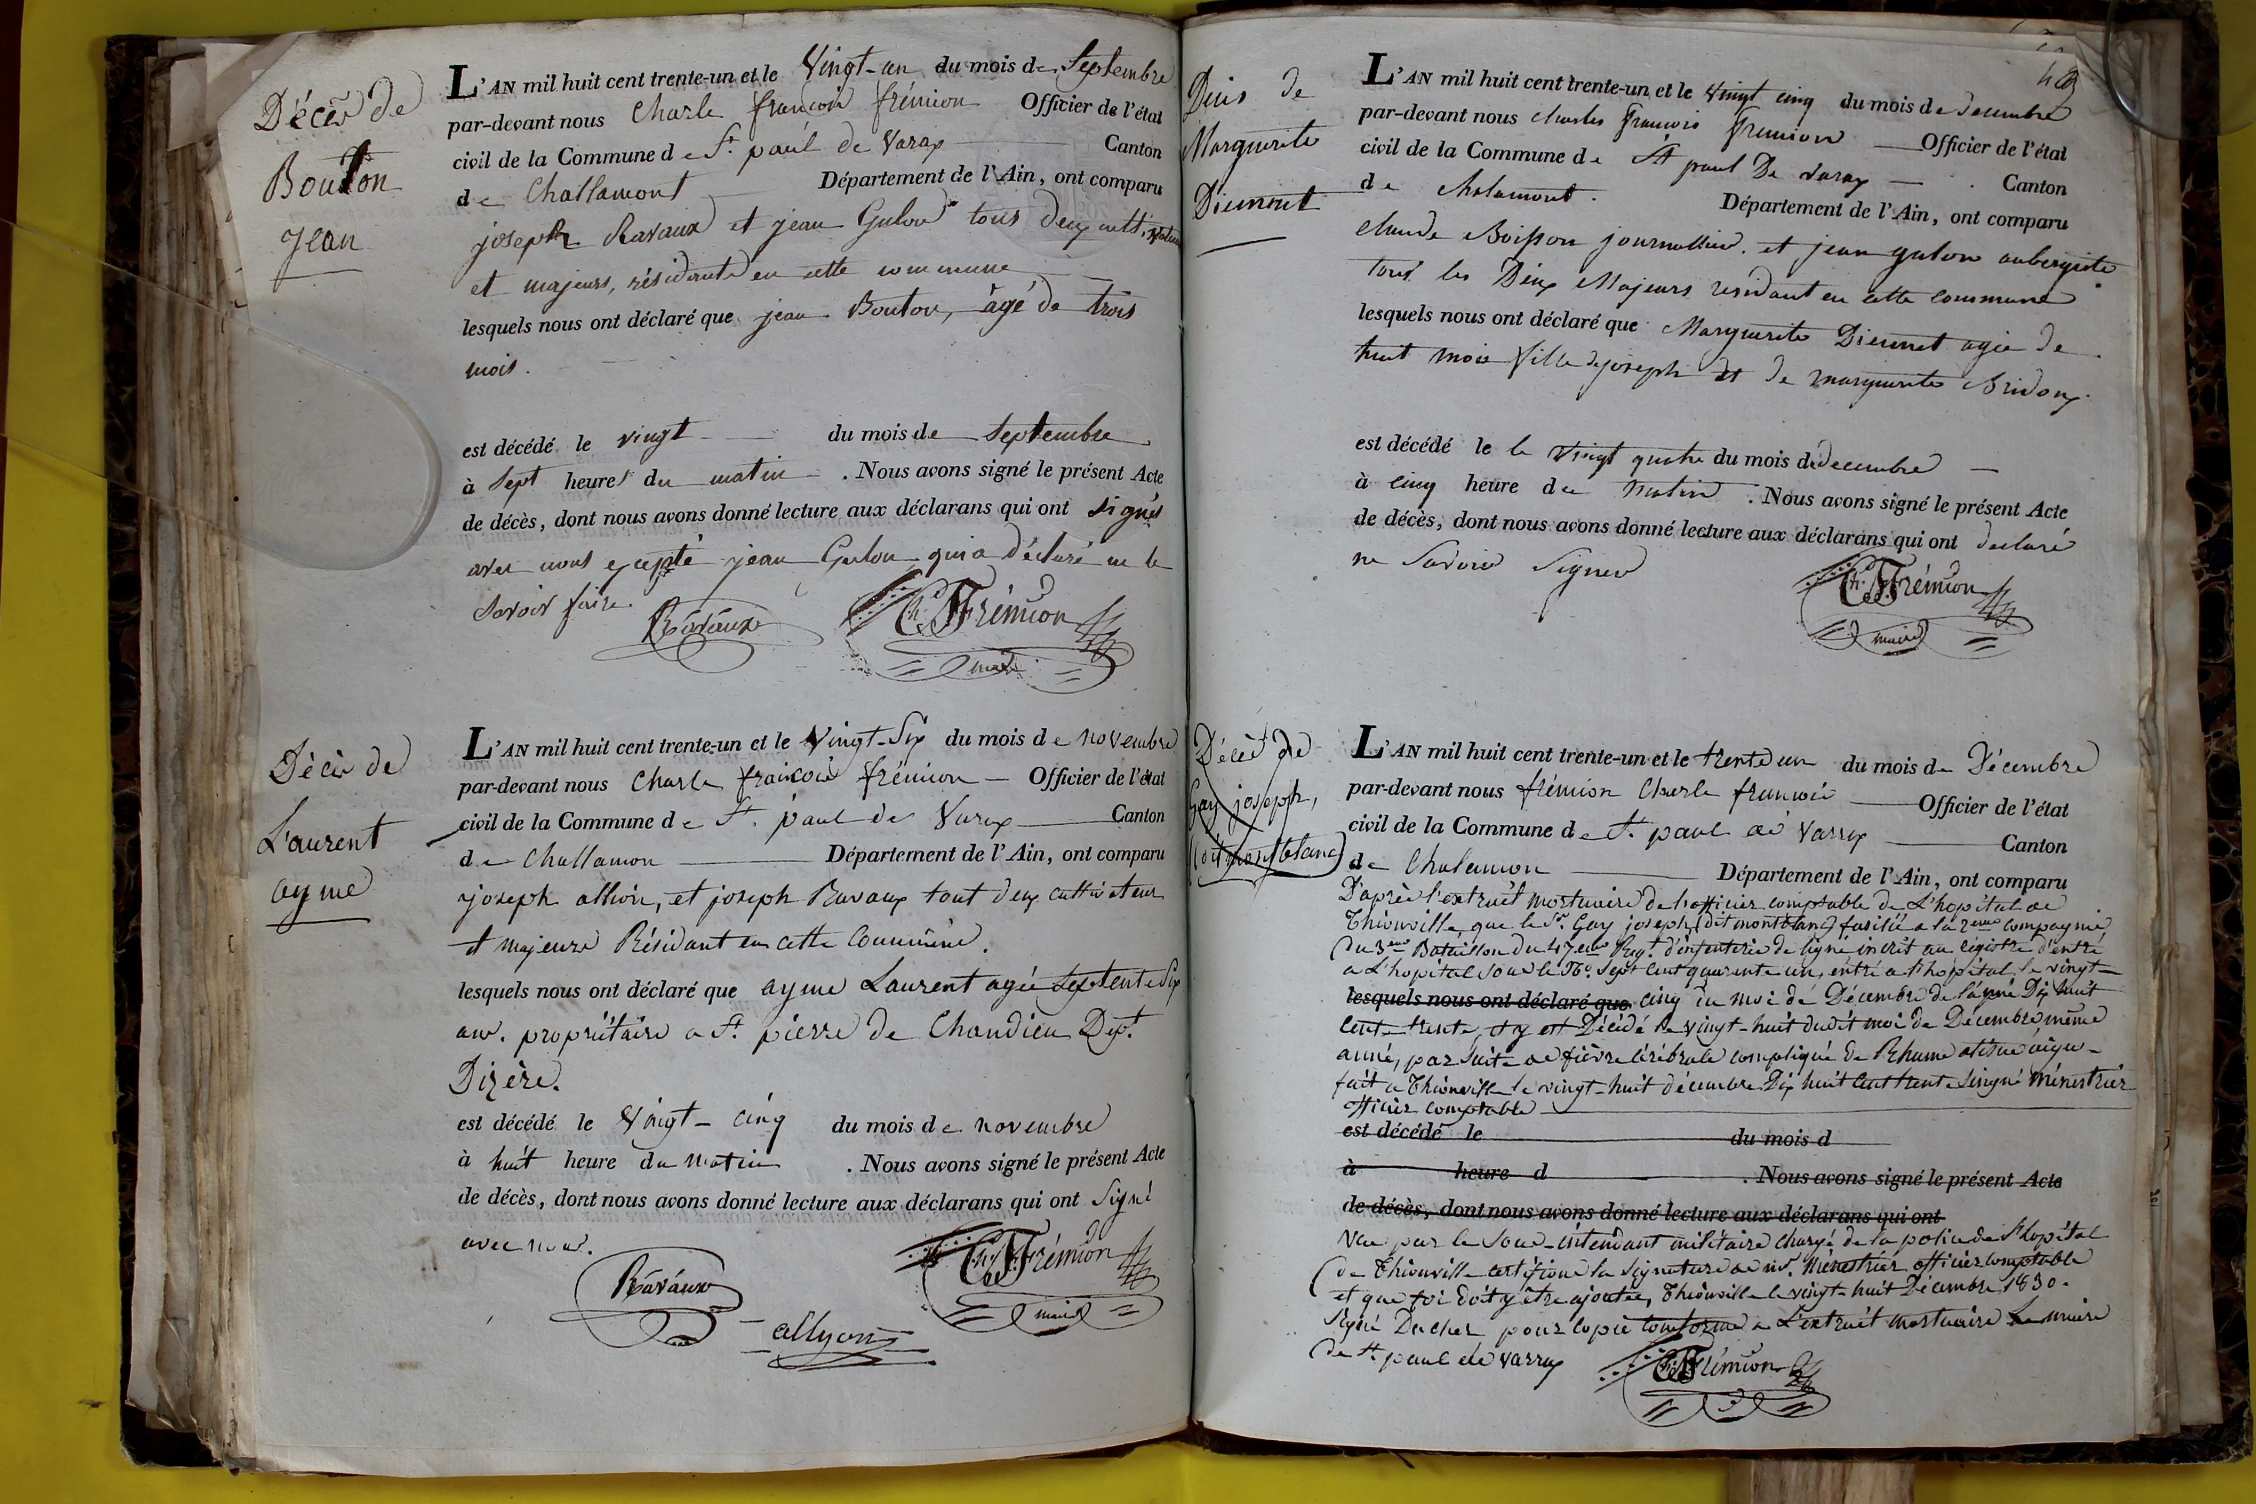 Décès de
Bouton
Jean
L'AN mil huit cent trente-un et le Vingt-un du mois de Septembre
par-devant nous Charle françois frémion Officier de l'état
civil de la Commune de St. paul de Varax Canton
de Challamont Département de l'Ain, ont comparu
joseph Ravaux et jean Gulon tous deux
et majeurs, résidants en cette commune
lesquels nous ont déclaré que jean Bouton, âgé de trois
mois.
est décédé le vingt du mois de Septembre
à Sept heures du matin . Nous avons signé le présent Acte
de décès, dont nous avons donné lecture aux déclarans qui ont signés
avec nous excepté jean Gulon qui a déclaré ne le
savoir faire.
Ravaux Ch. Frémion
maire
Décès de
Laurent
ayme
L'AN mil huit cent trente-un et le Vingt-Six du mois de novembre
par-devant nous Charle françois frémion Officier de l'état
civil de la Commune de St. paul de Varax Canton
de Challamon Département de l'Ain, ont comparu
joseph allion, et joseph Ravaux tout deux cultivateur
et majeurs Résidant en cette Commune.
lesquels nous ont déclaré que ayme Laurent agée Septente Six
ans. propriétaire a St. pierre de Chandieu Dept.
Dizère.
est décédé le Vingt-cinq du mois de novembre
à huit heure du matin . Nous avons signé le présent Acte
de décès, dont nous avons donné lecture aux déclarans qui ont Signé
avec nous.
Ravaux Ch. Frémion
maire
allyon
Marguerite
Diennet
L'AN mil huit cent trente-un et le vingt cinq du mois de decembre
par-devant nous charles françois fremion Officier de l'état
civil de la Commune de St paul De varax Canton
de chalamont. Département de l'Ain, ont comparu
claude Boisson journallier. et jean gulon aubergiste
tous les Deux Majeurs residant en cette commune
lesquels nous ont déclaré que Marguerite Diennet agée de
huit mois fille de joseph et de marguerite
est décédé le le vingt quatre du mois de decembre
à cinq heure du matin . Nous avons signé le présent Acte
de décès, dont nous avons donné lecture aux déclarans qui ont declaré
ne Savoir Signer
Ch. Frémion
maire
Décès de
Gay joseph,
(dit montblanc)
L'AN mil huit cent trente-un et le trente un du mois de Décembre
par-devant nous frémion Charle francois Officier de l'état
civil de la Commune de St. paul de Varrax Canton
de Chalamon Département de l'Ain, ont comparu
D'après l'extrait mortuaire de l'officier comptable de L'hopital de
Thionville, que le Sr. Gay joseph (dit montblanc) fusilié a la 2eme compagnie
du 3eme Bataillon du 47eme Regt. d'infenterie de ligne, incrit au régistre d'entré
a L'hopital sous le No. Sept Cent quarente un, entré a l'hopital, le vingt-
lesquels nous ont déclaré que cinq du moi de Décembre de l'anné Dix huit
Cent-trente, et y est Décédé le vingt-huit dudit moi de Décembre même
anné, par suite de fièvre cérébrale compliqué de Rhume
fait a Thionville le vingt-huit décembre Dix huit Cent trente Singné ménestrier
officier comptable
est décédé le du mois d
à heure d . Nous avons signé le présent Acte
de décès, dont nous avons donné lecture aux déclarans qui ont
Vue par le Sous-intendant militaire chargé de la police de l'hopital
de Thionville certifions la Signature de mr. Ménestrier officier comptable
et que foi doit y être ajoutée, Thionville le vingt-huit Décembre 1830.
Signé Ducher pour Copie Conforme a L'extrait mortuaire Le maire
de St. paul de Varrax
Ch. Frémion